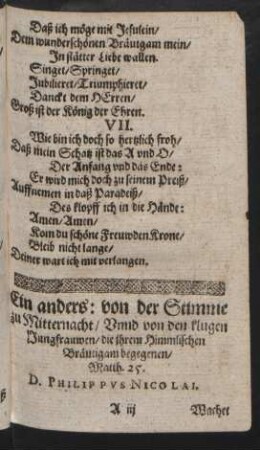 Daß ich möge mit Jesulein/
Dem wunderschönen Bräutgam mein/
In stätter Liebe wallen.
Singet/Springet/
Jubilieret/Triumphieret/
Danckt dem HErren/
Groß ist der König der Ehren.
VII.
Wie bin ich doch so hertzlich froh/
Daß mein Schatz ist das A vnd O/
Der Anfang vnd das Ende:
Er wird mich doch zu seinem Preiß/
Auffnemen in daß Paradeiß/
Des klopff ich in die Hände:
Amen/Amen/
Kom du schöne Freuwden Krone/
Bleib nicht lange/
Deiner wart ich mit verlangen.
Ein anders: von der Stimme
zu Mitternacht/ Vnnd von den klugen
Jungfrauwen/ die ihrem Himmlischen
Bräutigam begegenen/
Matth. 25.
D. PHILIPPVS NICOLAI.
A iij Wachet